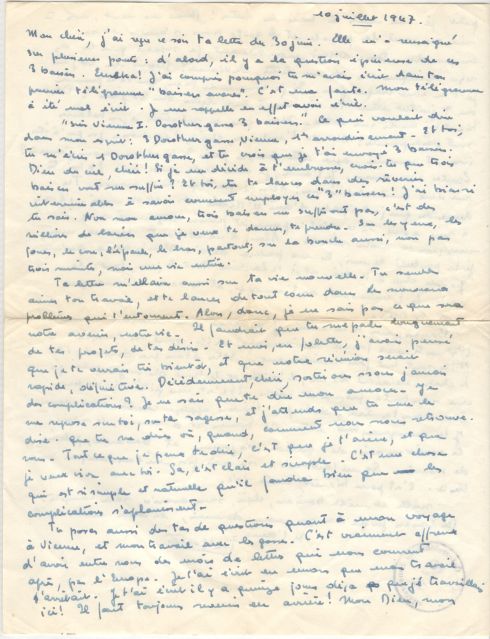 10 juillet 1947.
Mon chéri, j'ai reçu ce soir ta lettre du 30 juin. Elle m'a renseigné
sur plusieurs points : d'abord, il y a la question épineuse de ces
3 baisers. Eurêka! J'ai compris pourquoi tu m'avais écrit dans ton
premier télégramme "baisers encore". C'est une faute. Mon télégramme
a été mal écrit. Je me rappelle en effet avoir écrit.
"suis Vienne I. Dorotheergasse 3 baisers". Ce qui voulait dire
dans mon esprit : 3 Dorotheergasse, Vienne, 1er arrondissement. Et toi,
tu m'écris 1 Dorotheergasse, et tu crois que je t'ai envoyé 3 baisers.
Dieu du ciel, chéri! Si je me décide à t'embrasser, crois-tu que trois
baisers vont me suffire? Et toi, tu te lances dans des rêveries
interminables à savoir comment employer ces "3" baisers! J'ai bien ri
tu sais. Non mon amour, trois baisers ne suffiront pas, c'est des
millions de baisers que je veux te donner, te prendre. Sur les yeux, les
joues, le cou, l'épaule, le bras, partout, sur la bouche aussi, non pas
trois minutes, mais une vie entière.
Ta lettre m'éclaire aussi sur ta vie nouvelle. Tu sembles
aimer ton travail, et te lances de tout coeur dans les nouveaux
problèmes qui t'entourent. Alors, donc, je ne sais pas ce que sera
notre avenir, notre vie. Il faudrait que tu me parles longuement
de tes projets, de tes désirs. Et moi, j'avais pensé
que je te verrais très bientôt, et que notre réunion serait
rapide, définitive. Décidemment chéri, sortirons nous jamais
des complications? Je ne sais que te dire mon amour. Je
me repose sur toi, sur ta sagesse, et j'attends que tu me le
dise. Que tu me dises où, quand, comment nous nous retrouve-
rons. Tout ce que je peux te dire, c'est que je t'aime, et que
je veux vivre avec toi. Ça, c'est clair et simple. C'est une chose
qui est si simple et naturelle qu'il faudra bien que les
complications s'aplanissent.
Tu poses aussi des tas de questions quant à mon voyage
à Vienne, et mon travail avec les gosses. C'est vraiment affreux
d'avoir entre nous des mois de lettres qui nous courent
après, par l'Europe. Je t'ai écrit que mon travail
s'arrêtait. Je t'ai écrit il y a quinze jours déjà que j'y travaillais
ici! Il faut toujours revenir en arrière! Mon Dieu, mon